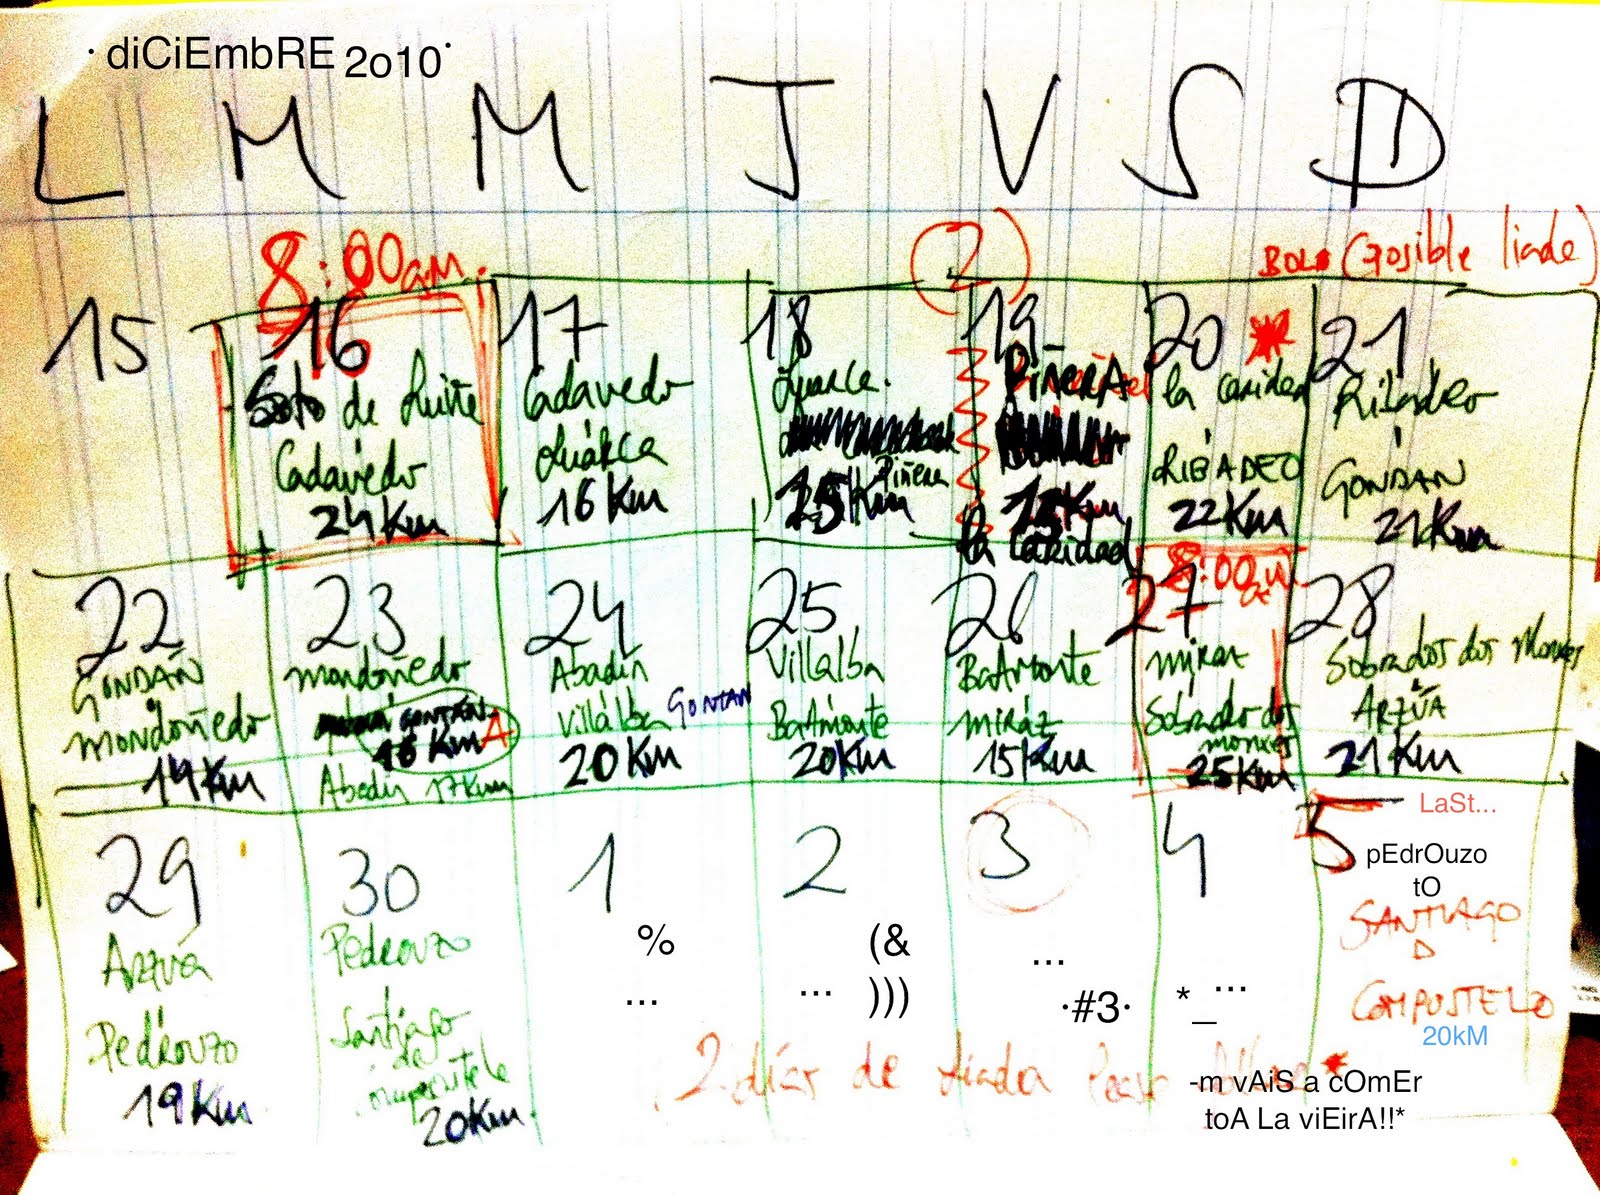 · diCiEmbRE 2o10·
L M M J V S D
8:00am.
2
BOLO (posible liada)
15
16
Soto de Luiña
Cadavedo
24Km
17
Cadavedo
Luarca
16 Km
18
Luarca.
Piñera
15Km
19
PiñerA
Km
la Caridad
20
la caridad
RIBADEO
22Km
21
Ribadeo
GONDAN
21Km
22
GONDAÑ
Mondoñedo
14Km
23
mondoñedo
GONTAN
16 Km A
Abadin 17Km
24
Abadín
Villalba GONTAN
20Km
25
Villalba
BaAmonte
20Km
26
BaAmonte
miráz
15Km
8:00a.m.
27
miraz
Sobrado dos
monxes
25Km
28
Sobrados dos Monxes
ARZÚA
21Km
29
Arzúa
Pedrouzo
19Km
30
Pedrouzo
Santiago
de
compostela
20Km.
1
%
...
2
(&
... )))
3
...
·#3·
4
*_ ...
5 LaSt...
pEdrOuzo
tO
SANTIAGO
D
COMPOSTELA
20kM
2 días de liada
-m vAiS a cOmEr
toA La viEirA!!*